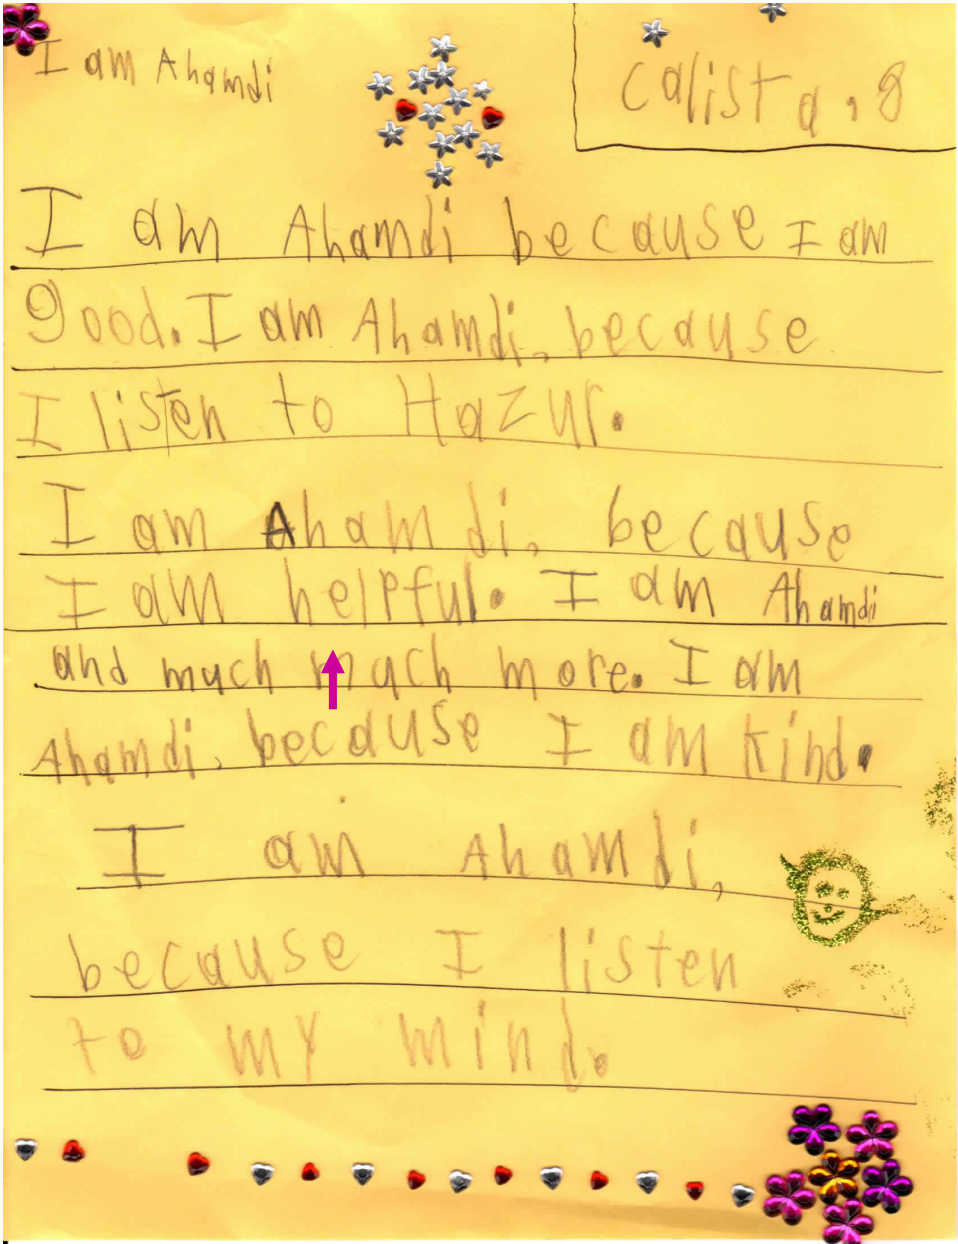 I am Ahamdi
Calista, 8
I am Ahamdi because I am
good. I am Ahamdi, because
I listen to Hazur.
I am Ahamdi, because
I am helpful. I am Ahamdi
and much much more. I am
Ahamdi, because I am kind.
I am Ahamdi,
because I listen
to my mind.